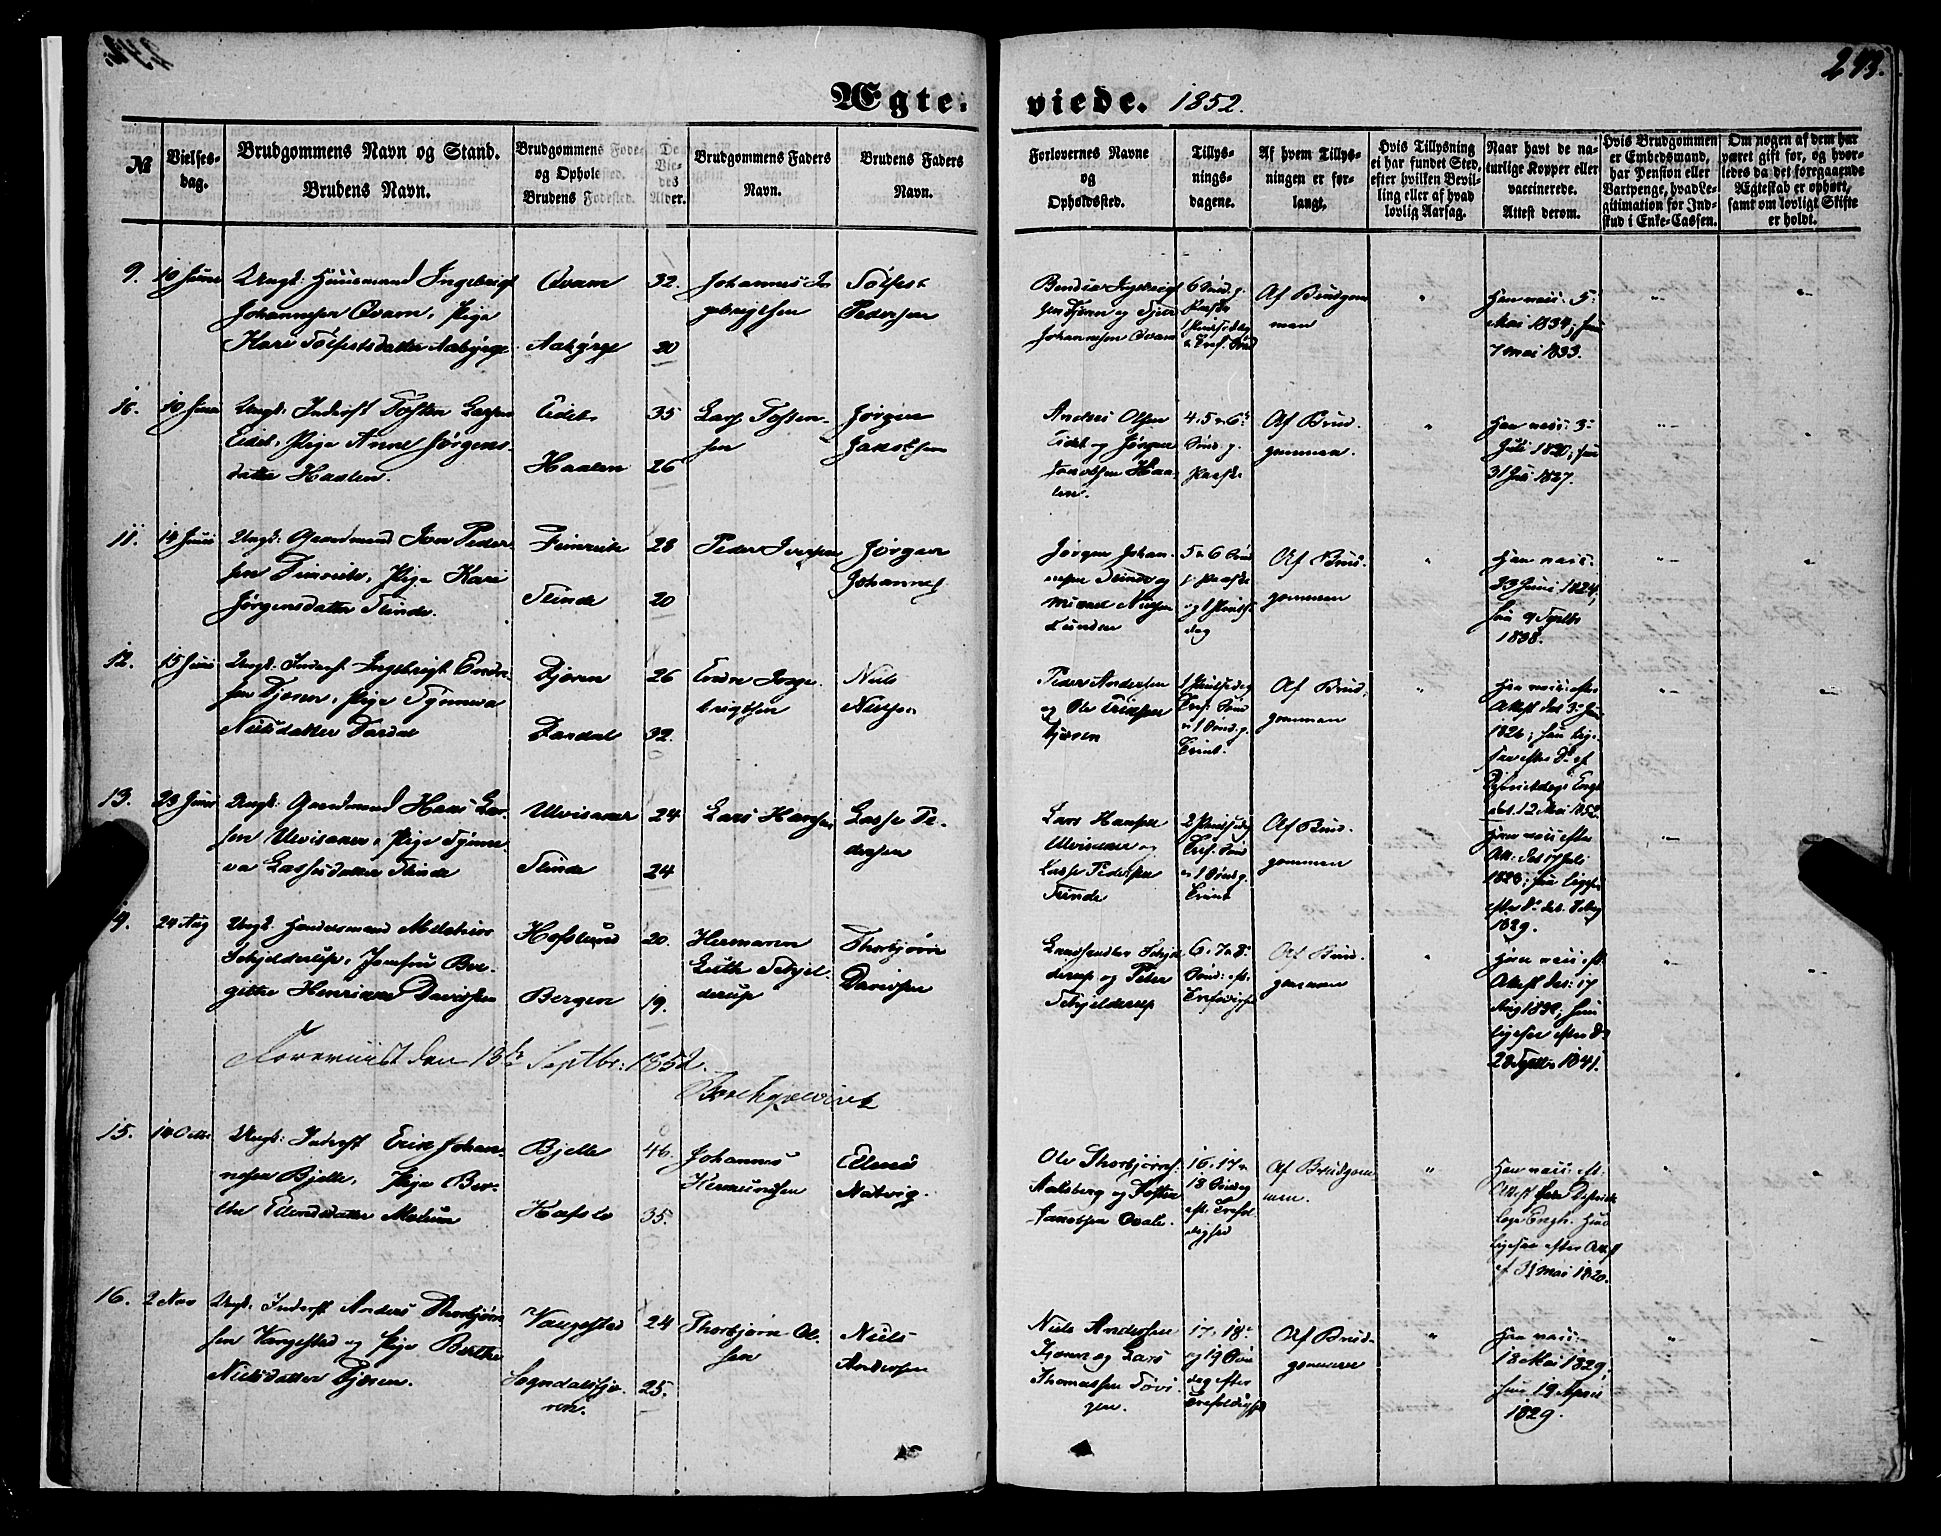 243.
Ægte. viede. 1852.
№
Vielses-
dag.
Brudgommens Navn og Stand.
Brudens Navn.
Brudgommens Fode-
og Opholssted.
Brudens Fodested.
De
Vie-
des
Alder.
Brudgommens Faders
Navn.
Brudens Faders
Navn.
Forlovernes Navne
og
Opholdssted.
Tillys-
nings-
dagene.
Af hvem Tillys-
ningen er for-
langt.
Hvis Tillysning
ei har fundet Sted,
efter hvilken Bevil-
ling eller af hvad
lovlig Aarsag.
Naar havt de na-
turlige Kopper eller
vaccinerede.
Attest derom.
Hvis Brudgommen
er Embedsmand,
har Pension eller
Vartpenge, hvad Le-
gitimation for Ind-
skud i Enke-Cassen.
Om nogen af dem har
været gift før, og hvor-
ledes da det foregaaende
Ægteskab er ophørt,
samt om lovligt Skifte
er holdt.
9. 10 Juni
Ungk: Huusmand Ingebrigt
Johannesen Qvam, Pige
Kari Tolfestsdatter Aabÿrge
Qvam
Aabÿrge
32.
20
Johannes In
gebrigtsen
Tolfest
Pedersen
Ingebrigt
sen Kjøren og
Johannesen Qvam
6 Sønd. p.
Paaske
1 Pintsedag
Af Brudgom
men
Han vacc: 5
Mai 1834; hun
7 Mai 1833.
10. 10 Juni
Ungk: Inderst Tosten Larsen
Eidet, Pige Anne Jørgens-
datter Haalen.
Eidet
Haalen
35
26
Lars Tosten-
sen
Jørgen
Jakobsen
Anders Olsen
Eidet og Jørgen
Jakobsen Haa-
len.
4. 5 & 6
Sønd. p.
Paaske
Af Brud-
gommen.
Han vacc: 3
Juli 1820; hun
31 Juli 1827.
11. 14 Juni
Ungk: Gaardmand Jon Peder-
sen Fimreite, Pige Kari
Jørgensdatter Slinde.
Fimreite
Slinde
28
20
Peder Iversen
Jørgen
Johannes
Jørgen Johan-
nesen Slinde og
5 & 6 Sønd
p. Paaske
og 1 Pintse
dag
Af Brud-
gommen
Han vacc:
23 Juni 1824;
hun 9 Septbr
1838.
12. 15 Juni
Ungk: Inderst Ingebrigt Endre-
sen Kjøren, Pige Synneva
Nielsdatter Dardal
Kjøren
Dardal
26
32.
Endre Inge-
brigtsen
Niels
Nielsen
Peder Andersen
og Ole Eriksen
Kjøren
1 Pintsedag
Tref. Sønd
& 1 Sønd. p.
Trinit.
Af Brud-
gommen
Han vacc: efter
Attest det 3 Juni
1826; hun lige-
saa efter Do af
Distriktslæge Engh
det. 12 Mai 1852.
13. 23 Juni
Ungk: Gaardmand Hans Lar-
sen Ulvisaker, Pige Synne-
va Lassesdatter Slinde
Ulvisaker
Slinde
24
24
Lars Hansen
Lasse Pe-
dersen
Lars Hansen
Ulvisaker og
Lasse Pedersen
Slinde
2 Pintsedag
Tref. Sønd
& 1 Sønd p.
Trinit
Af Brud-
gommen
Han vacc: efter
Att: det 17 Juli
1828; hun ligesaa
1829.
14. 24 Aug
Ungk. Handelsmand Melchior
Schjelderup, Jomfru Ber-
gitte Henrikke Davidsen
Hofslund
Bergen
20.
19.
Hermann
Schjel-
derup
Thorbjørn
Davidsen
Landhandler Schjel
derup og Peter
Schjelderup
6. 7 & 8
Sønd: eft.
Trefoldighed
Af Brud-
gommen
Han vacc: eft.
Attest det: 17
Aug 1832; hun
ligesaa efter Do
28 Septbr 1841.
Foreviist den 13de Septbr: 1852.
15. 14 Octbr
Ungk: Inderst Erik Johan-
nesen Bjelle, Pige Ber-
the Ellendsdatter Modum
Bjelle
Hafslo
46.
35.
Johannes
Hermundsen
Ellend
Natvig.
Ole Thorbjørns.
Aaberg og Tosten
Jakobsen Qvale.
16. 17 &
18 Søndag
eft. Trefol-
dighed
Af Brudgom
men.
Han vacc: eft.
Attest fra Distrikts
læge Engh. Hun
ligesaa efter Attest
af 31 Mai 1820.
16. 2 Nov
Ungk. Inderst Anders Thorbjørn-
sen Vangestad og Pige Berthe
Nielsdatter Kjøren.
Vangestad
Sogndalsfjæ-
ren.
24
25.
Thorbjørn Ol-
sen
Niels
Andersen
Niels Andersen
Kjøren og Lars
Thomassen
17, 18
og 19 Søn
dag efter
Trefoldighed
Af Brud-
gommen
Han vacc:
18 Mai 1829,
hun 19 April
1829.